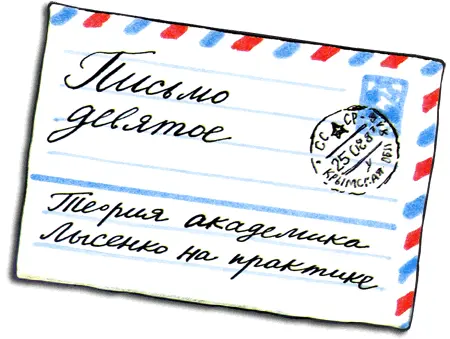 Письмо
девятое
СССР
25.08.8
КРЫМСКАЯ
Теория академика
Лысенко на практике